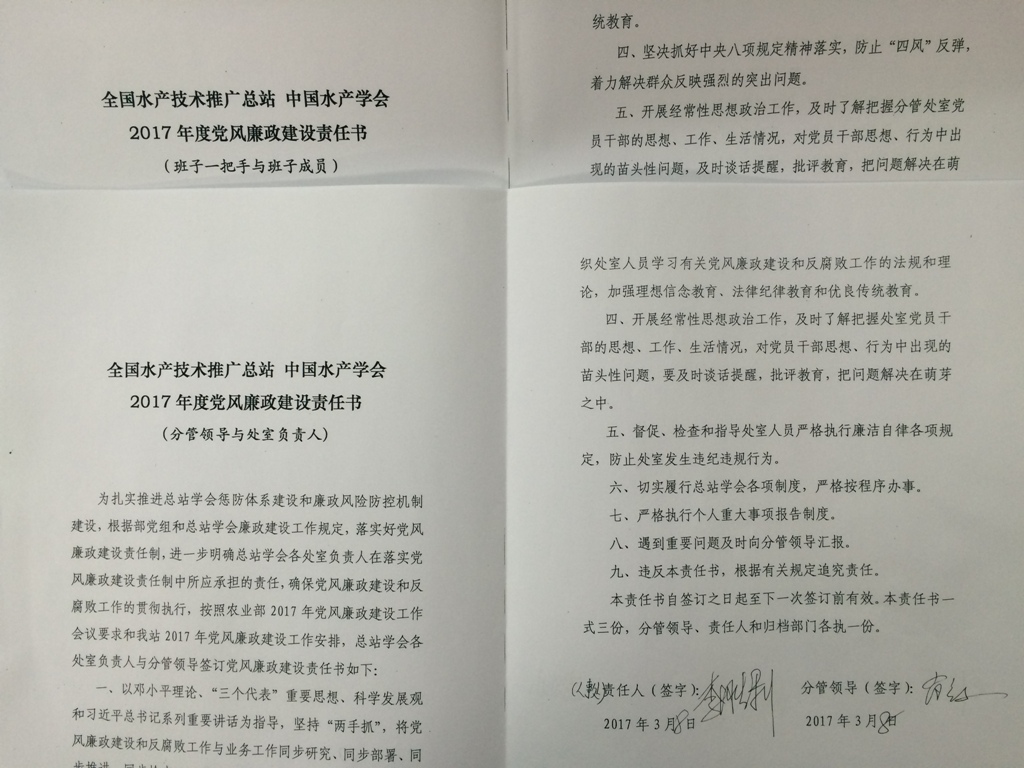 全国水产技术推广总站 中国水产学会
2017 年度党风廉政建设责任书
（班子一把手与班子成员）
统教育。
四、坚决抓好中央八项规定精神落实，防止“四风”反弹，
着力解决群众反映强烈的突出问题。
五、开展经常性思想政治工作，及时了解把握分管处室党
员干部的思想、工作、生活情况，对党员干部思想、行为中出
现的苗头性问题，及时谈话提醒，批评教育，把问题解决在萌
全国水产技术推广总站 中国水产学会
2017 年度党风廉政建设责任书
（分管领导与处室负责人）
为扎实推进总站学会惩防体系建设和廉政风险防控机制
建设，根据部党组和总站学会廉政建设工作规定，落实好党风
廉政建设责任制，进一步明确总站学会各处室负责人在落实党
风廉政建设责任制中所应承担的责任，确保党风廉政建设和反
腐败工作的贯彻执行，按照农业部 2017 年党风廉政建设工作
会议要求和我站 2017 年党风廉政建设工作安排，总站学会各
处室负责人与分管领导签订党风廉政建设责任书如下：
一、以邓小平理论、“三个代表”重要思想、科学发展观
和习近平总书记系列重要讲话为指导，坚持“两手抓”，将党
风廉政建设和反腐败工作与业务工作同步研究、同步部署、同
织处室人员学习有关党风廉政建设和反腐败工作的法规和理
论，加强理想信念教育、法律纪律教育和优良传统教育。
四、开展经常性思想政治工作，及时了解把握处室党员干
部的思想、工作、生活情况，对党员干部思想、行为中出现的
苗头性问题，要及时谈话提醒，批评教育，把问题解决在萌芽
之中。
五、督促、检查和指导处室人员严格执行廉洁自律各项规
定，防止处室发生违纪违规行为。
六、切实履行总站学会各项制度，严格按程序办事。
七、严格执行个人重大事项报告制度。
八、遇到重要问题及时向分管领导汇报。
九、违反本责任书，根据有关规定追究责任。
本责任书自签订之日起至下一次签订前有效。本责任书一
式三份，分管领导、责任人和归档部门各执一份。
责任人（签字）： 分管领导（签字）：
2017 年 3 月 8 日 2017 年 3 月 8 日